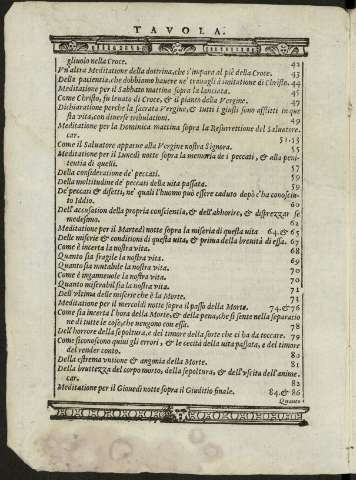 TAVOLA.
gliuolo nella Croce. 42
Vn'altra Meditatione della dottrina, che s'impara al piè della Croce. 43
Della patientia, che dobbiamo hauere ne' trauagli à imitatione di Christo. 44
Meditatione per il Sabbato mattina sopra la lanciata. 45
Come Christo, fu leuato di Croce, & il pianto della Vergine. 47
Dichiaratione perche la sacrata Vergine, & tutti i giusti sono afflitti in que
sta vita, con diuerse tribulationi. 49
Meditatione per la Dominica mattina sopra la Resurrettione del Saluatore.
car. 51.53
Come il Saluatore apparue alla Vergine nostra Signora. 55
Meditatione per il Lunedì notte sopra la memoria de i peccati, & alla peni-
tentia di quelli. 57
Della consideratione de' peccati. 59
Della moltitudine de' peccati della vita passata. 59
De' peccati & difetti, ne' quali l'huomo può essere caduto dopò c'ha conosciu-
to Iddio. 60
Dell'accusation della propria conscientia, & dell'abhorire, & disprezzar se
medesimo. 62
Meditatione per il Martedì notte sopra la miseria di questa vita 64. & 65
Delle miserie & conditioni di questa vita, & prima della breuità di essa. 67
Come è incerta la nostra vita. 68
Quanto sia fragile la nostra vita. 69
Quanto sia mutabile la nostra vita. 70
Come è ingannevole la nostra vita. 70
Quanto miserabil sia la nostra vita. 71
Dell'vltima delle miserie che è la Morte. 73
Meditatione per il mercoledì notte sopra il passo della Morte. 74. & 76
Come sia incerta l'hora della Morte, & della pena, che si sente nella separatio
ne di tutte le cose, che uengono con essa. 78
Dell'horrore della sepoltura, e del timore della sorte che ci ha da toccare. 79
Come si conoscono quiui gli errori, & le cecità della vita passata, e del timore
del render conto. 80
Della estrema vntione & angonia della Morte. 81
Della bruttezza del corpo morto, della sepoltura, & dell'vscita dell'anime.
car. 82
Meditatione per il Giouedì notte sopra il Giuditio finale. 84. & 86
Quanto